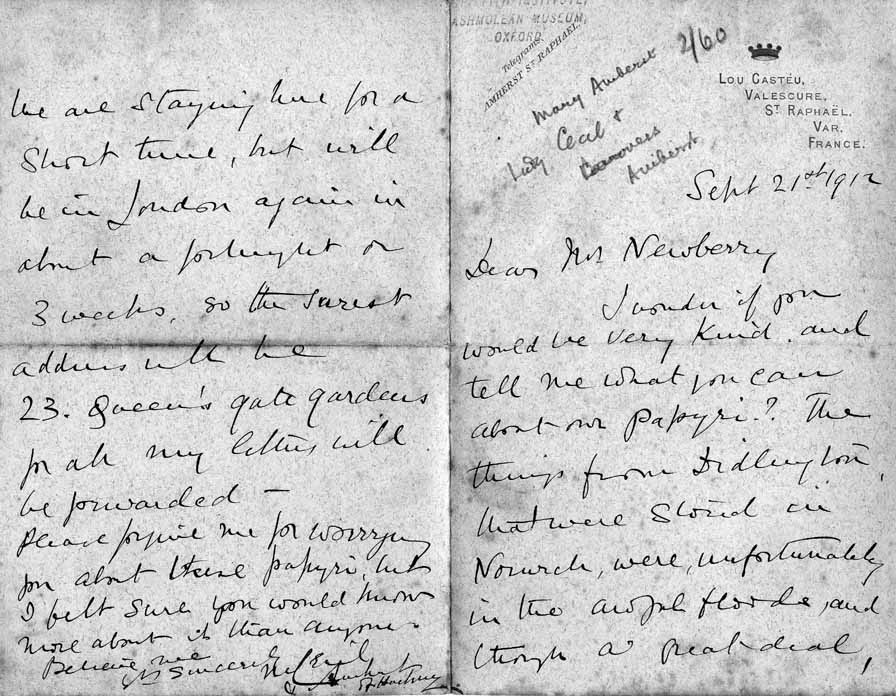 ASHMOLEAN MUSEUM,
OXFORD.
Telegrams,
AMHERST ST RAPHAËL.
Mary Amherst 2/60
Lady Cecil &
Amherst
LOU CASTÉU,
VALESCURE,
ST RAPHAËL.
VAR.
FRANCE.
Sept 21st 1912
Dear Mr Newberry
I wonder if you
would be very kind and
tell me what you can
about our papyri? The
things from Didlington
that were stored in
Norwich, were, unfortunately
in the awful floods, and
though a great deal,
We are staying here for a
short time, but will
be in London again in
about a fortnight or
3 weeks, so the surest
address will be
23. Queen's gate gardens
for all my letters will
be forwarded —
Please forgive me for worrying
you about these papyri, but
I felt sure you would know
more about it than anyone.
Believe me
Yrs Sincerely
Amherst
of Hackney